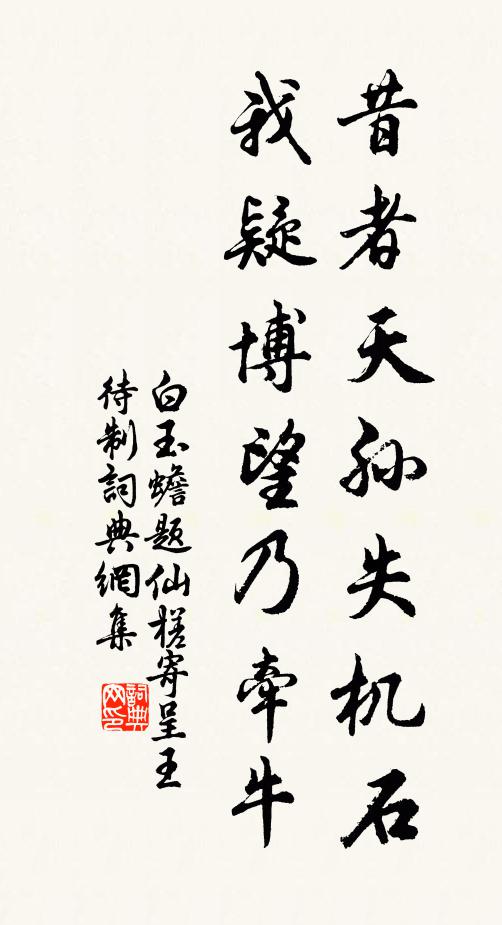 昔者天孙失机石
我疑博望乃牵牛
白玉蟾题仙槎寄呈王
待制詞典網集
詞典网印